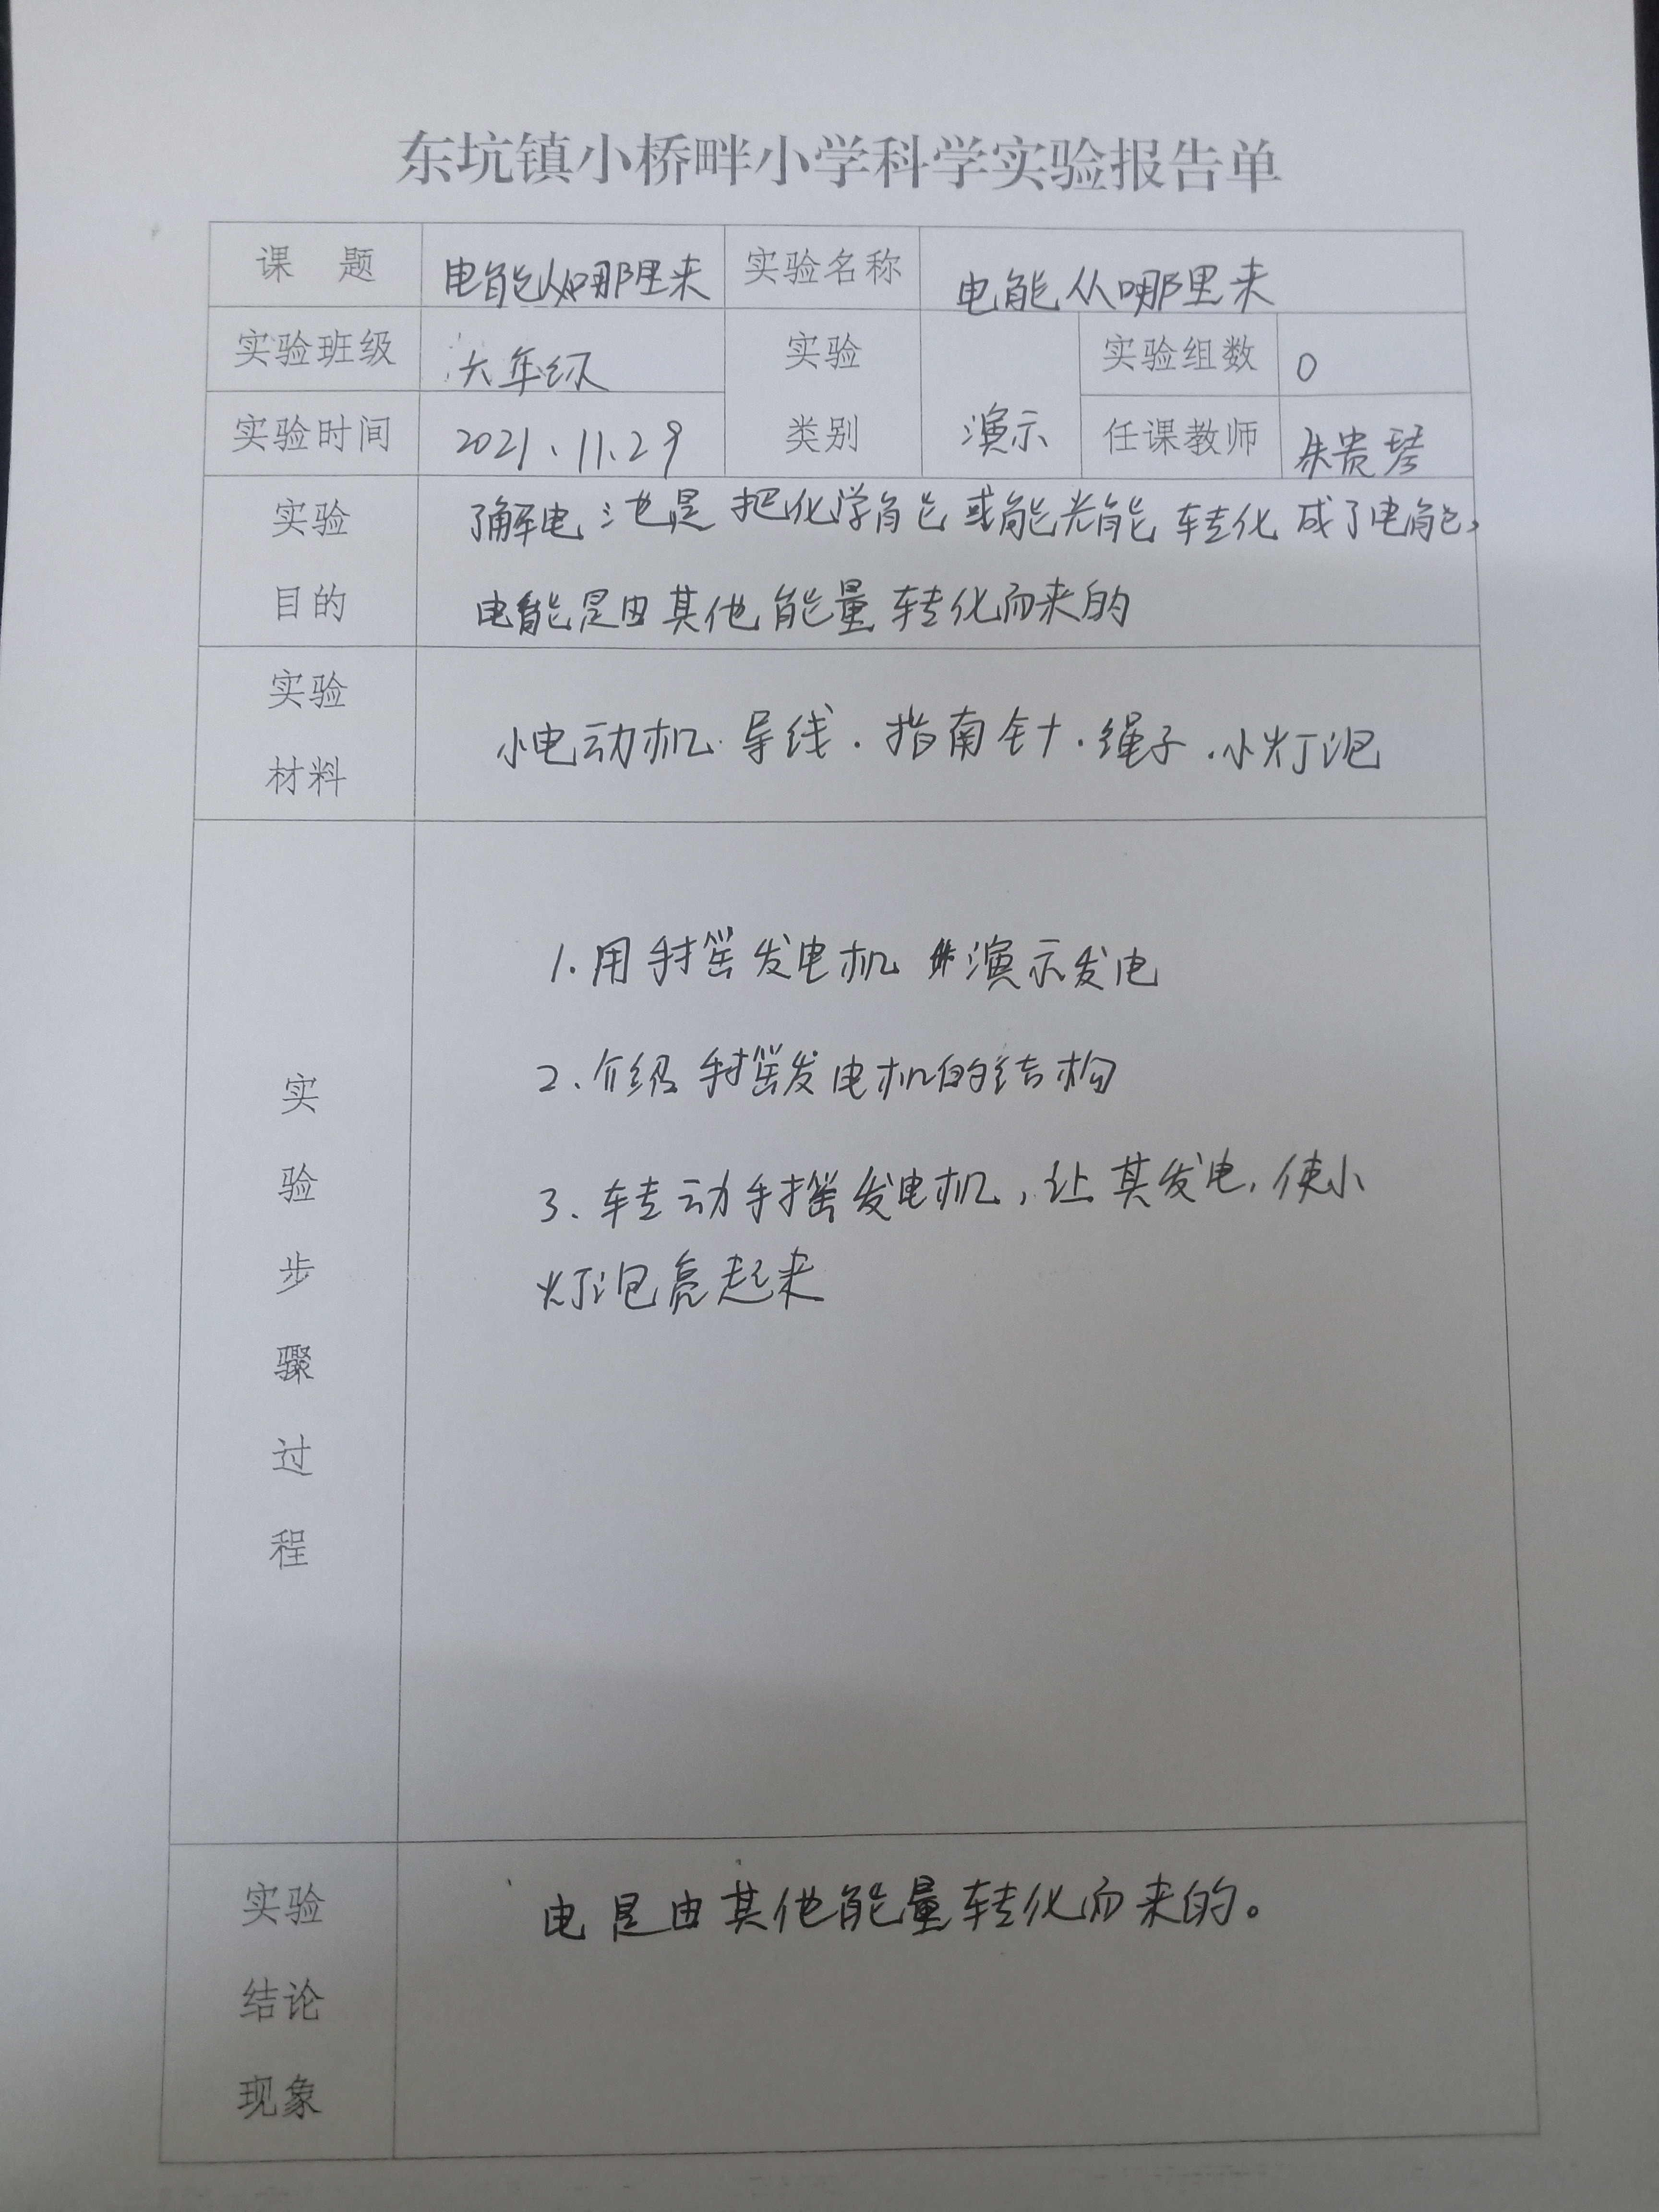 东坑镇小桥畔小学科学实验报告单
课 题 电能从哪里来 实验名称 电能从哪里来
实验班级 六年级 实验 实验组数 0
实验时间 2021.11.29 类别 演示 任课教师 朱贵琴
实验 了解电池是把化学能或能光能转化成了电能,
目的 电能是由其他能量转化而来的
实验
小电动机.导线.指南针.绳子.小灯泡
材料
1.用手摇发电机演示发电
2、介绍手摇发电机的结构
实
3、转动手摇发电机,让其发电,使小
验
灯泡亮起来
步
骤
过
程
实验 电是由其他能量转化而来的。
结论
现象